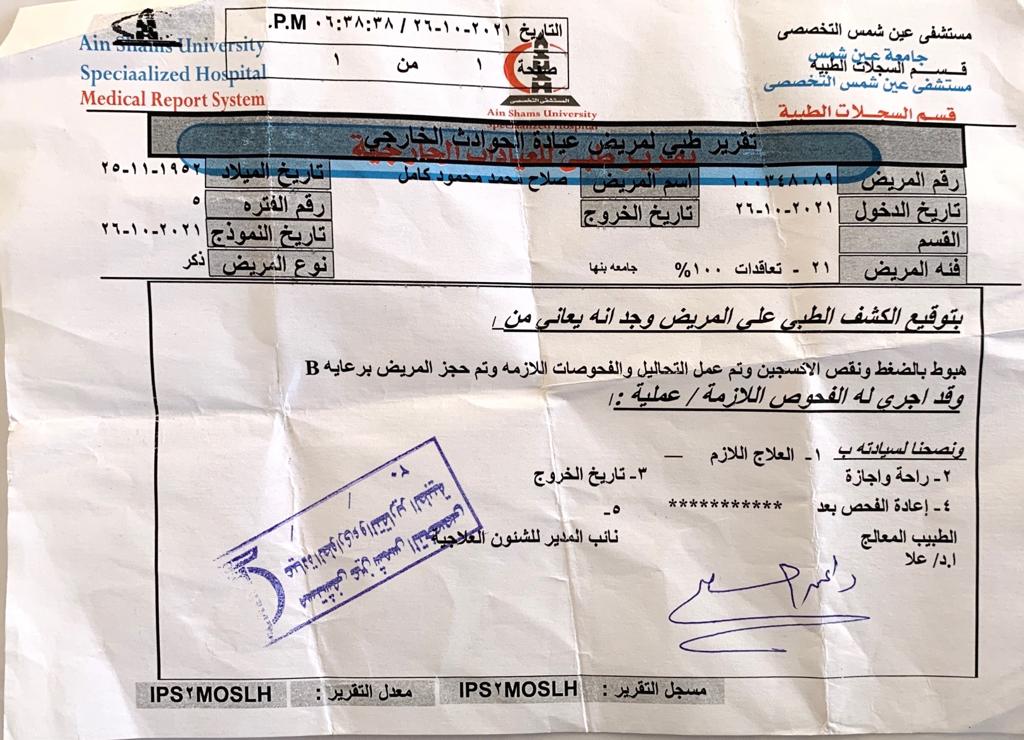 مستشفى عين شمس التخصصى
التاريخ ٢٦-١٠-٢٠٢١ / ٠٦:٣٨:٣٨ P.M.
Ain Shams University
جامعة عين شمس
قسم السجلات الطبية
صفحة ١ من ١
Speciaalized Hospital
مستشفى عين شمس التخصصى
Medical Report System
قسم السجلات الطبية
ASHH
المستشفى التخصصى
Ain Shams University
Specialized Hospital
تقرير طبي لمريض عيادة الحوادث الخارجي
تقرير طبى للعيادات الخارجية
رقم المريض ١٠٠٣٤٨٠٨٩ اسم المريض صلاح محمد محمود كامل تاريخ الميلاد ٢٥-١١-١٩٥٢
تاريخ الدخول ٢٦-١٠-٢٠٢١ تاريخ الخروج رقم الفتره ٥
القسم تاريخ النموذج ٢٦-١٠-٢٠٢١
فئه المريض ٢١ - تعاقدات ١٠٠% جامعه بنها نوع المريض ذكر
بتوقيع الكشف الطبي علي المريض وجد انه يعاني من /
هبوط بالضغط ونقص الاكسجين وتم عمل التحاليل والفحوصات اللازمه وتم حجز المريض برعايه B
وقد اجري له الفحوص اللازمة / عملية :/
ونصحنا لسيادته ب ١- العلاج اللازم —
٢- راحة واجازة ٣- تاريخ الخروج
٤- إعادة الفحص بعد *********** ٥-
الطبيب المعالج نائب المدير للشئون العلاجية
ا.د/ علا
مستشفى عين شمس التخصصى
عيادة الطوارىء والتقارير الطبية
/ / ٢٠
مسجل التقرير : IPS٢MOSLH معدل التقرير : IPS٢MOSLH